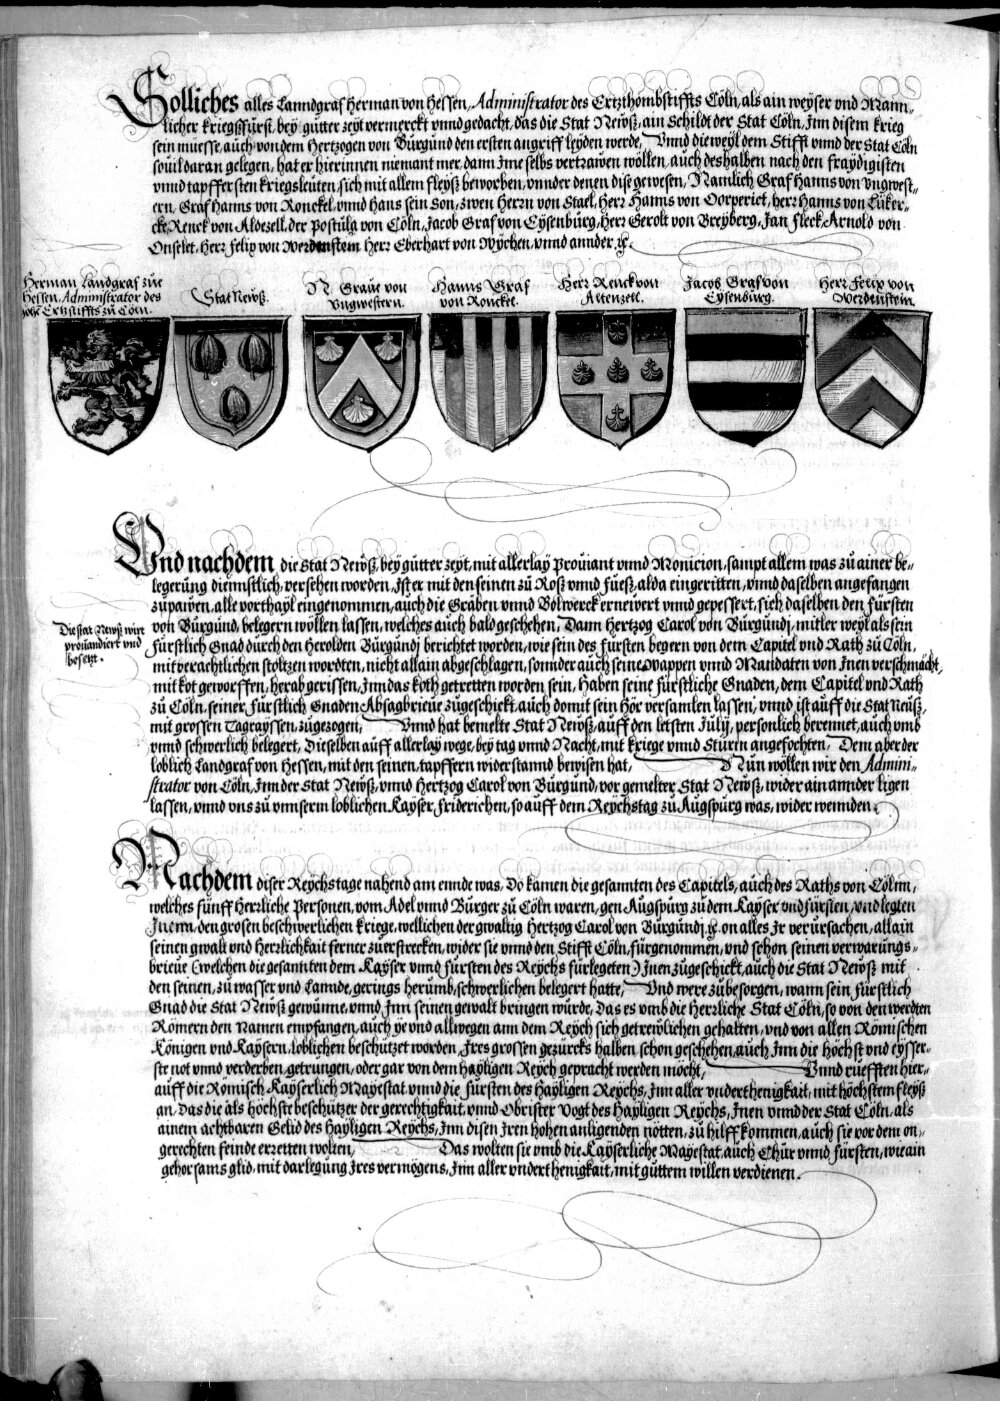 Solliches alles Lanndgraf Herman von Hessen, Administrator des Ertzthombstiffts Cöln, als ain weyser vnd Mann-
licher kriegsfürst, bey gutter zeyt vermerckt vnnd gedacht, das die Stat Newß, ain Schildt der Stat Cöln, Jnn disem krieg
sein muesse, auch von dem Hertzogen von Burgund den ersten angriff leyden werde, Vnnd dieweyl dem Stifft vnnd der Stat Cöln
souil daran gelegen, hat er hierinnen niemant mer, dann Jme selbs vertrawen wöllen, auch deshalben nach den fraydigisten
vnnd tapffersten kriegsleüten, sich mit allem fleysz beworben, vnnder denen dise gewesen, Namlich Graf Hanns von Vngwest-
ern, Graf Hanns von Ronckel, vnnd Hans sein Son, zwen Herrn von Stael, Herr Hanns von Oorperict, herr Hanns von Lüker-
cke, Renck von Aldezell, der Postula von Cöln, Jacob Graf von Eysenburg, Herr Gerolt von Breyberg, Jan Fleck, Arnold von
Onselet, Herr Felix von Werdenstein, Herr Eberhart von Wychen, vnnd annder ꝛc.
Herman Landgraf zue
Hessen, Administrator des
Ertzstiffts zu Cöln.
Stat Newß.
N Graue von
Vngwestern.
Hanns Graf
von Ronckel.
Herr Renck von
Altenzell.
Jacob Graf von
Eysenburg.
Herr Felix von
Werdenstein.
Vnd nachdem die Stat Newß, bey gutter zeyt, mit allerlay Prouiant vnnd Monicion, sampt allem was zu ainer be-
legerung diennstlich, versehen worden, Jst er mit den seinen zu Roß vnnd fueß, alda eingeritten, vnnd daselben angefangen
zupawen, alle vorthayl eingenommen, auch die Gräben vnnd Bolwerck ernewert vnnd gepessert, sich daselben den fürsten
von Burgund, belegern wöllen lassen, welches auch bald geschehen, Dann Hertzog Carol von Burgundj, mitler weyl als sein
Die stat Newß wirt
prouiandiert vnd
besetzt.
fürstlich Gnad durch den Herolden Burgundj berichtet worden, wie sein des fürsten begern von dem Capitel vnd Rath zu Cöln,
mit verachtlichen stoltzen wordten, nicht allain abgeschlagen, sonnder auch seine wappen vnnd Mandaten von Jnen verschmächt,
mit kot geworffen, herab gerissen, Jnn das koth getretten worden sein, Haben seine fürstliche Gnaden, dem Capitel vnd Rath
zu Cöln, seiner fürstlich Gnaden Absagbrieue zugeschickt, auch domit sein Hör versamlen lassen, vnnd ist auff die Stat Neuß,
mit grossen Tagrayssen, zugezogen, Vnnd hat bemelte Stat Newß, auff den letsten July, personlich berennet, auch vmb
vnnd schwerlich belegert, Dieselben auff allerlay wege, bey tag vnnd Nacht, mit kriege vnnd Sturm angefochten, Dem aber der
loblich Landgraf von Hessen, mit den seinen, tapffern widerstannd bewisen hat, Nun wöllen wir den Admini-
strator von Cöln, Jnn der Stat Newß, vnnd Hertzog Carol von Burgund, vor gemelter Stat Newß, wider ain annder ligen
lassen, vnnd vns zu vnnserm loblichen Kayser, Friderichen, so auff dem Reychstag zu Augspurg was, wider wennden.
Nachdem diser Reychstage nahend am ennde was, Do kamen die gesannten des Capitels, auch des Raths von Cölnn,
welches fünff Herzliche Personen, vom Adel vnnd Burger zu Cöln waren, gen Augspurg zu dem Kayser vnd fürsten, vnd legten
Jnenn, den grosen beschwerlichen kriege, wellichen der gwaltig Hertzog Carol von Burgundj, ꝛc. on alles Jr verursachen, allain
seinen gwalt vnd Herzlichkait ferner zuerstrecken, wider sie vnnd den Stifft Cöln, fürgenommen, vnd schon seinen verwarungs-
brieue (welchen die gesannten dem Kayser vnnd fürsten des Reychs fürlegeten) Jnen zugeschickt, auch die Stat Newß mit
den seinen, zu wasser vnd Lannde, gerings herumb, schwerlichen belegert hatte, Vnd were zubesorgen, wann sein fürstlich
Gnad die Stat Newß gewünne, vnnd Jnn seinen gewalt bringen wurde, Das es vmb die Herzliche Stat Cöln, so von den werdten
Römern den Namen empfangen, auch ye vnd allwegen ann dem Reych sich getrewlichen gehalten, vnd von allen Römischen
Königen vnd Kaysern, loblichen beschützet worden, Jres grossen gezürcks halben, schon geschehen, auch Jnn die höchst vnd eysser-
ste not vnnd verderben, getrungen, oder gar von dem Hayligen Reych gepracht werden möcht, Vnnd rüefften hier-
auff die Römisch Kayserlich Mayestat vnnd die fürsten des Hayligen Reychs, Jnn aller vnderthenigkait, mit höchstem fleyß
an, Das die als höchste beschützer der gerechtigkait, vnnd Obrister Vogt des Hayligen Reychs, Jnen vnnd der Stat Cöln, als
ainem achtbaren Gelid des Hayligen Reychs, Jnn disen Jren hohen anligenden nötten, zu hilff kommen, auch sie vor dem on-
gerechten feinde erretten wolten, Das wolten sie vmb die Kayserliche Mayestat, auch Chur vnnd fürsten, wie ain
gehorsams glid, mit darlegung Jres vermögens, Jnn aller vnderthenigkait, mit guttem willen verdienen.